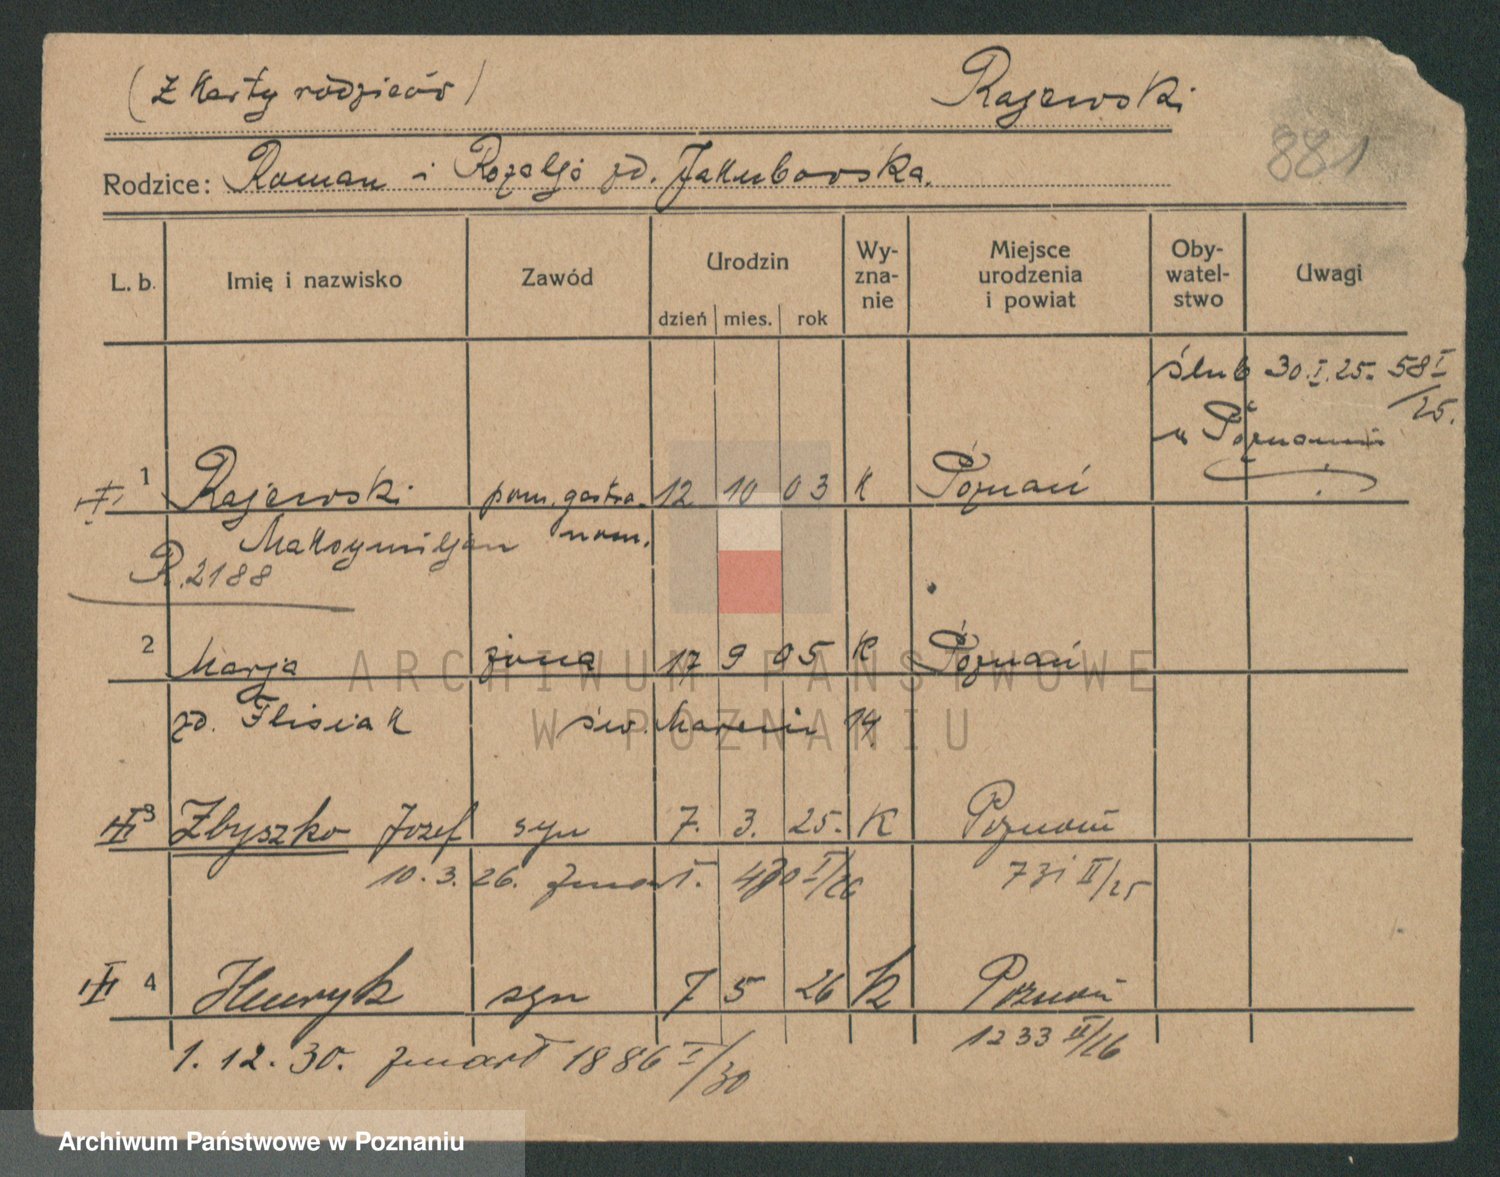 (z Karty rodziców) Rajewski
881
Rodzice: Roman i Rozalja zd. Jakubowska.
L. b. Imię i nazwisko Zawód Urodzin dzień mies. rok Wy-zna-nie Miejsce urodzenia i powiat Oby-watel-stwo Uwagi
ślub 30.I.25. 58 I/25.
w Poznaniu
1 Rajewski pom. gastro- 12 10 03 K Poznań
Maksymiljan nom.
R. 2188
2 Marja żona 17 9 05 K Poznań
zd. Flisiak św. Marcin 14
3 Zbyszko Józef syn 7. 3. 25. K Poznań
10.3.26. zmarł. 470 I/26 731 II/25
4 Henryk syn 7 5 26 K Poznań
1233 II/26
1. 12. 30. zmarł 1886 I/30
ARCHIWUM PAŃSTWOWE
W POZNANIU
Archiwum Państwowe w Poznaniu